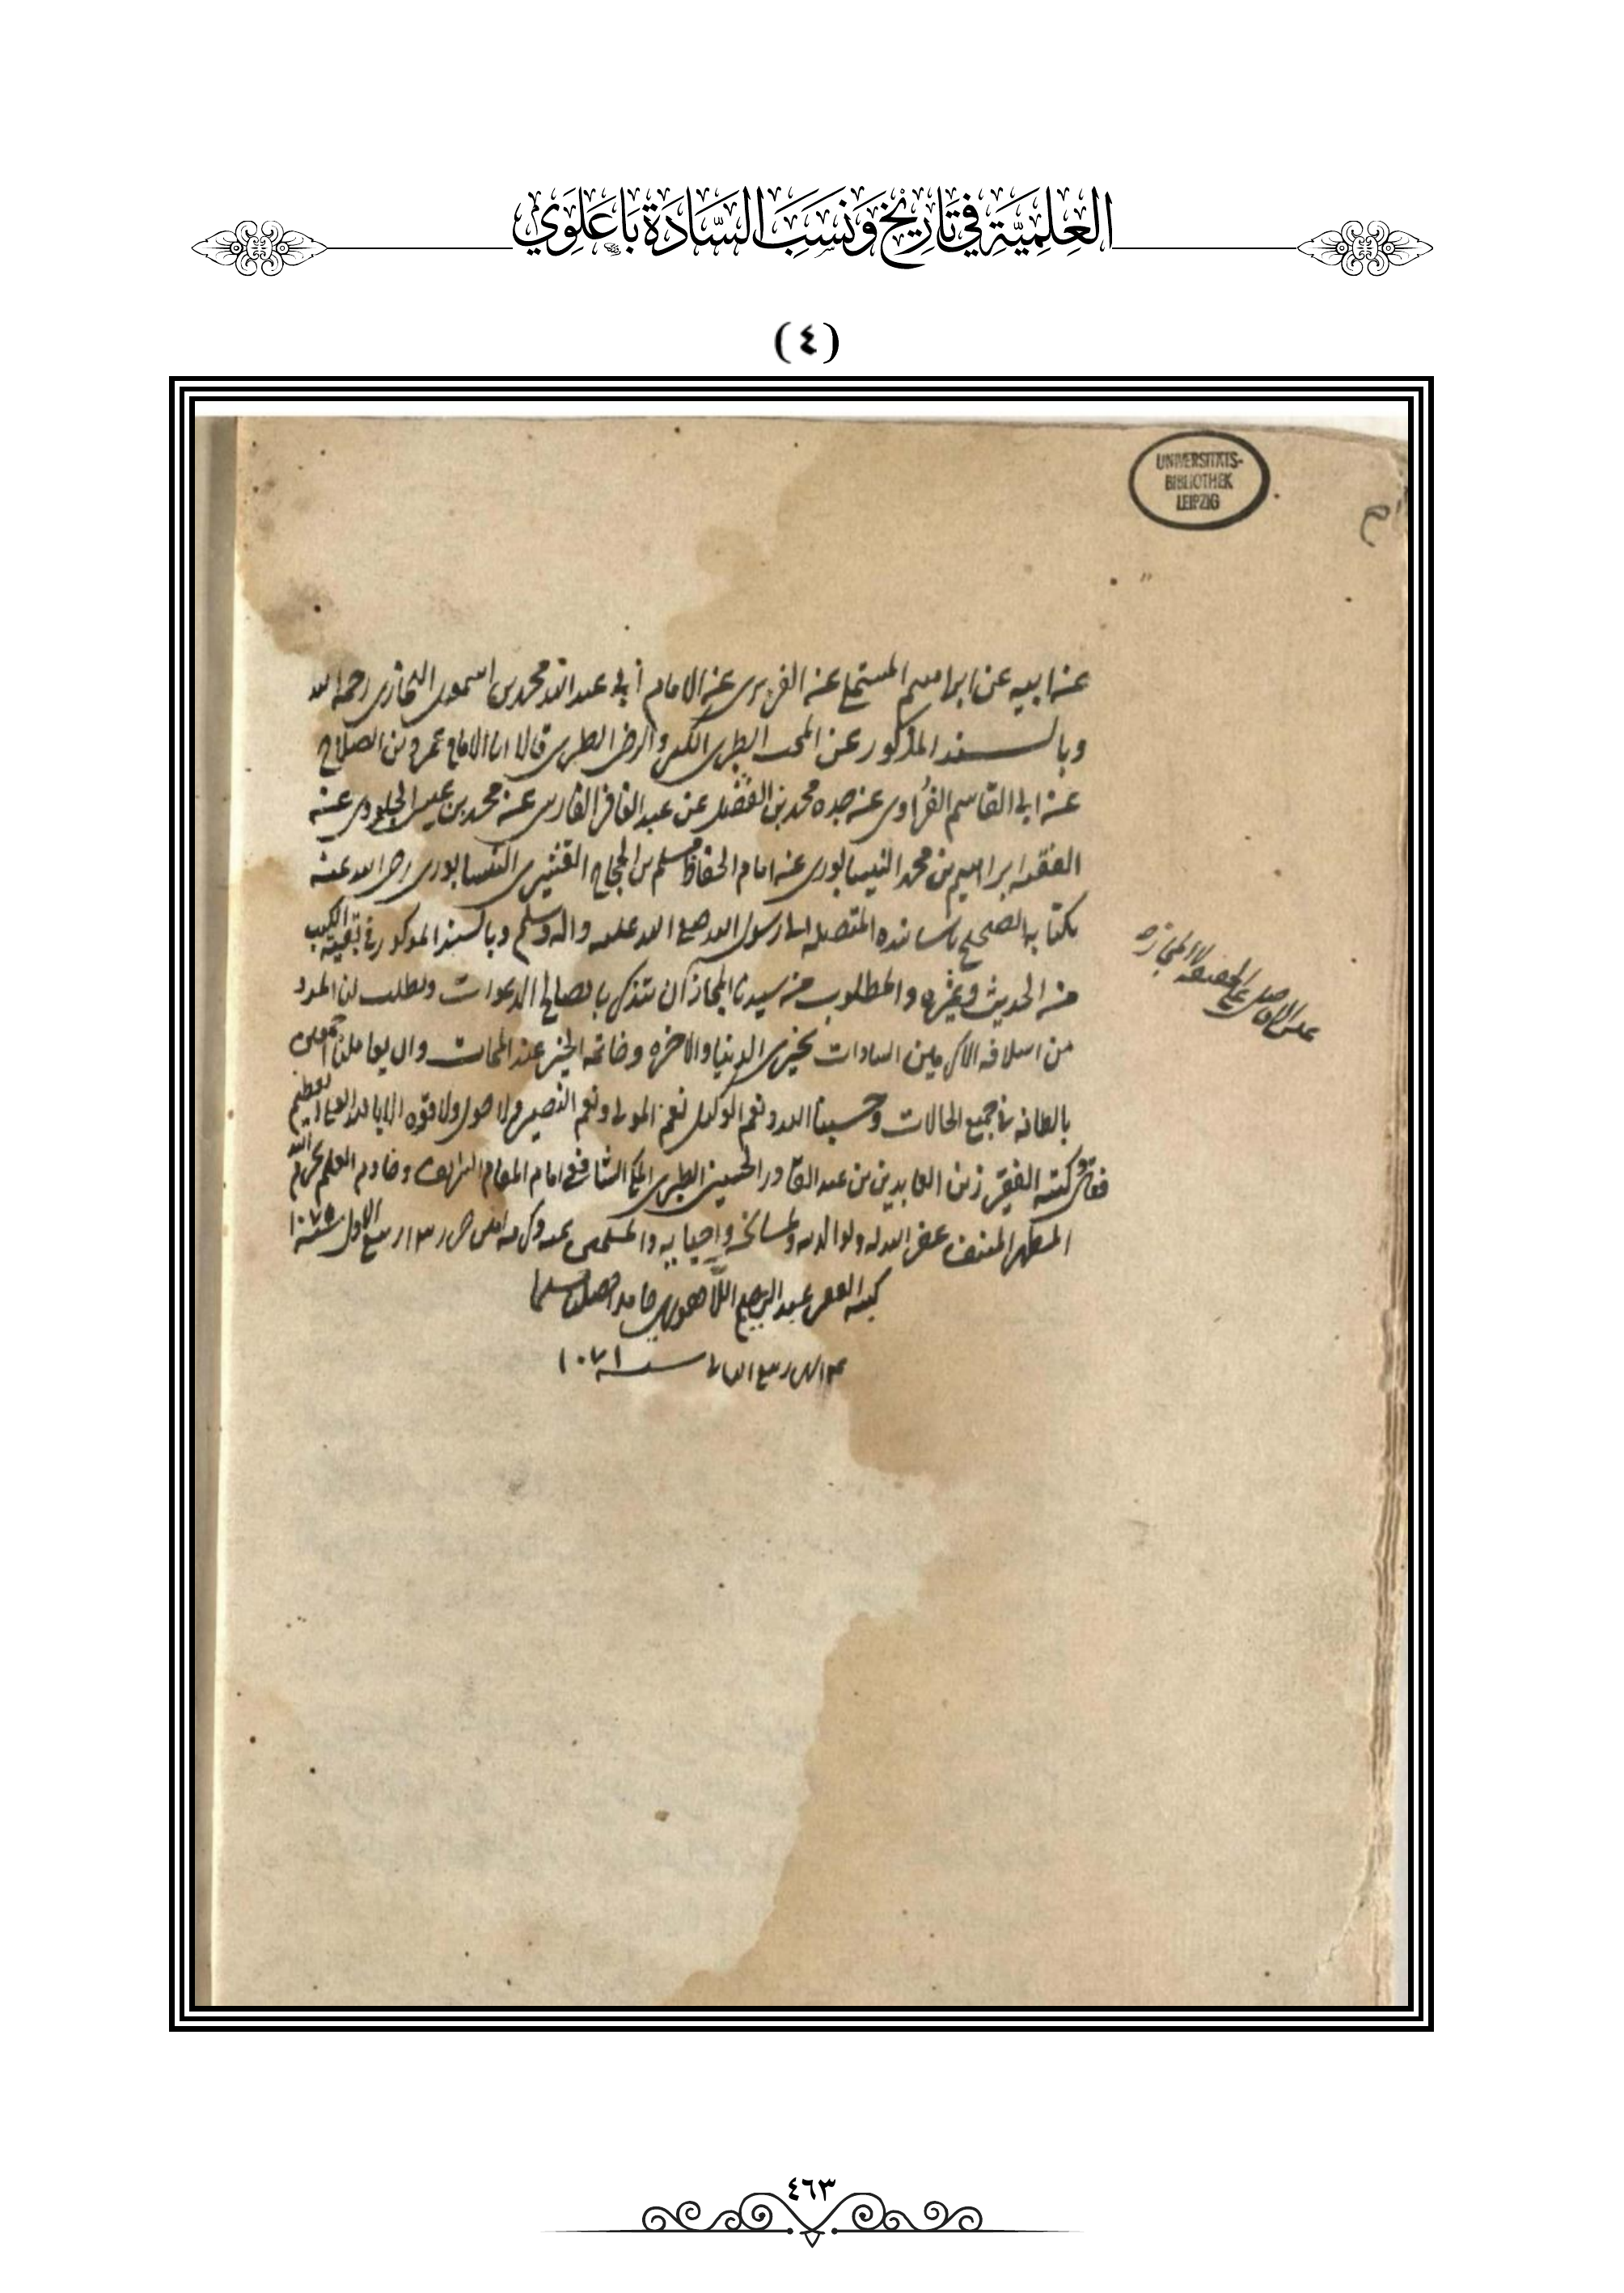 العِلمِيَّةِ فِي تَارِيْخِ وَنَسَبِ السَّادَةِ بَاعَلَوِي
(٤)
UNIVERSITÄTS-
BIBLIOTHEK
LEIPZIG
عن ابيه عن ابراهيم المستملي عن الفربري عن الامام أبي عبد الله محمد بن اسمعيل البخاري رحمه الله
وبالسند المذكور عن المحب الطبري الكبير والرضي الطبري قالا انا الامام عمرو بن الصلاح
عن ابي القاسم الفُراوي عن جده محمد بن الفضل عن عبد الغافر الفارسي عن محمد بن عيسى الجلودي عن
الفقيه ابراهيم بن محمد النيسابوري عن امام الحفاظ مسلم بن الحجاج القشيري النيسابوري رضي الله عنه
بكتابه الصحيح باسانيده المتصله الى رسول الله صلى الله عليه واله وسلم وبالسند المذكور في بقية الكتب
من الحديث وغيره والمطلوب من سيدنا المجاز أن يتذكر بالصالح الدعوات ويطلب لنا المدد
من اسلافه الاكرمين السادات بخيري الدنيا والاخره وخاتمه الخير عند الممات وان يعاملنا
بالطافه في جميع الحالات وحسبنا الله ونعم الوكيل نعم المولى ونعم النصير ولا حول ولا قوه الا بالله العلي العظيم
كتبه الفقير زين العابدين بن عبد القادر الحسيني الطبري المكي الشافعي امام المقام الشريف وخادم العلم بحرم الله
المطهر المنيف عفى الله له ولوالديه ولمشايخه واحبابه والمسلمين بمنه وكرمه امين ربيع الاول سنة
كتبه الفقير عبد اللاهوري حامدا مصليا مسلما
ربيع الثاني سنة ١٠٧١
على الاصل
٤٦٣